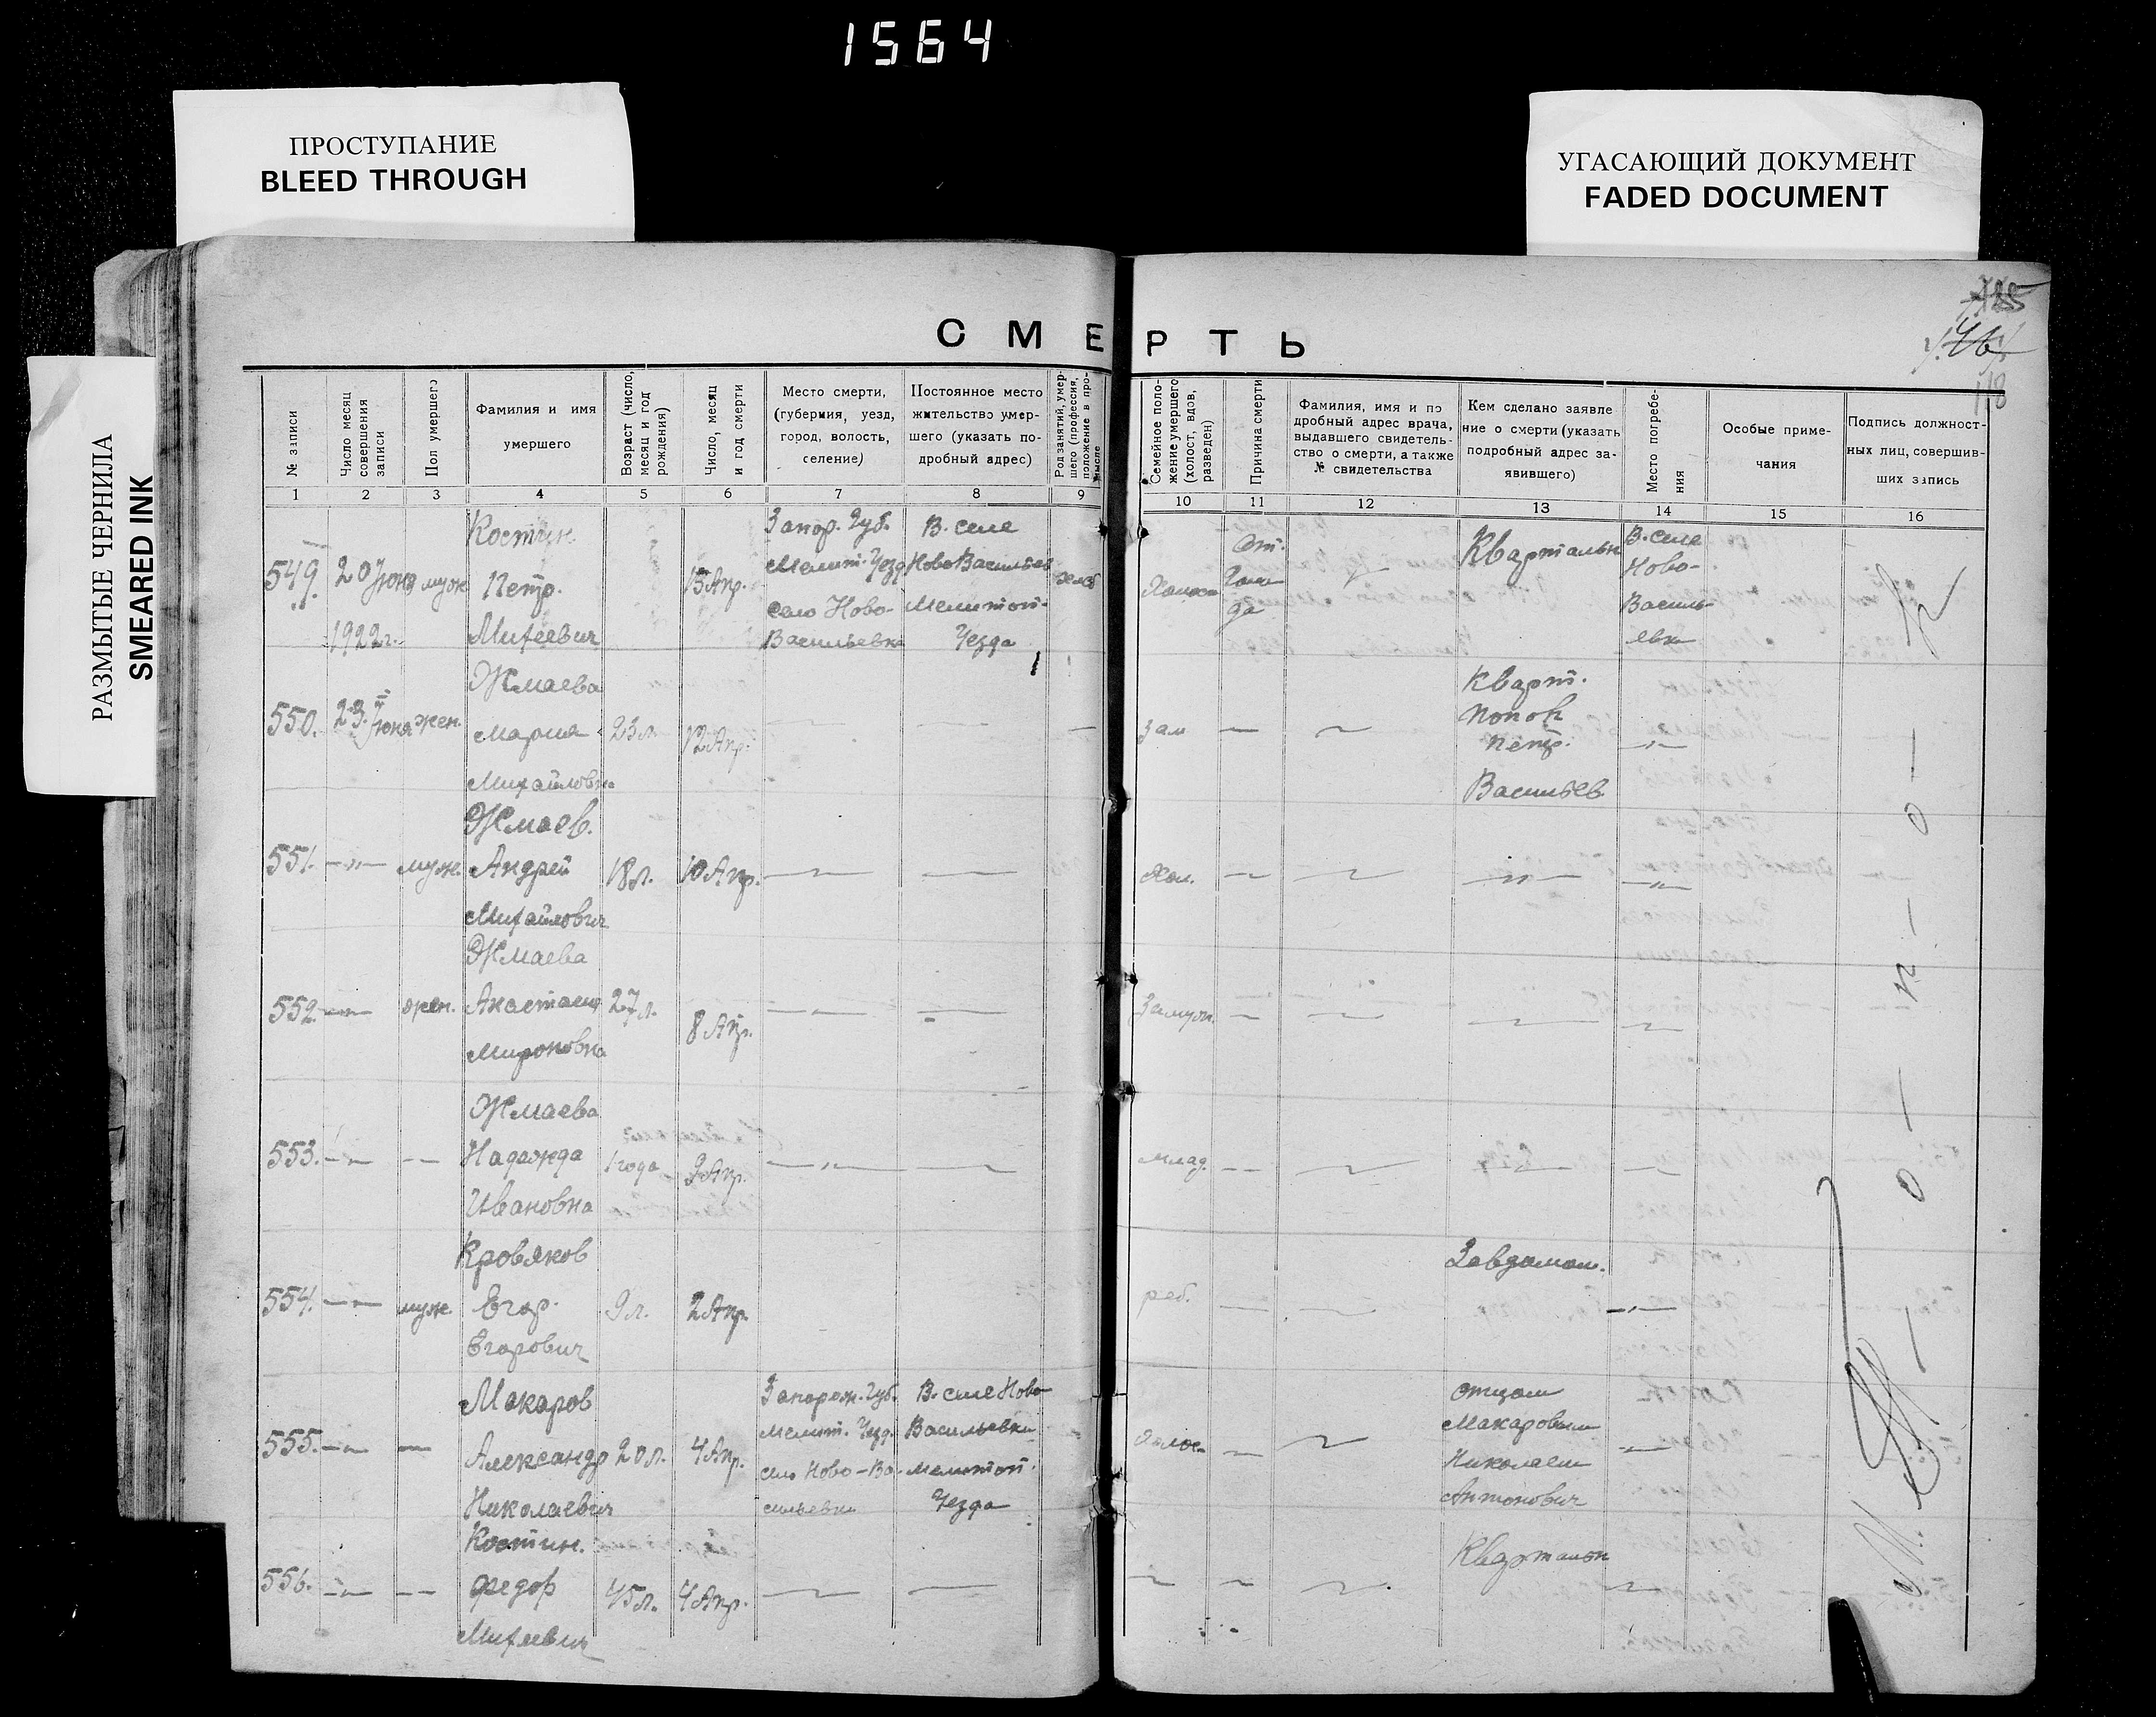 1564
ПРОСТУПАНИЕ
BLEED THROUGH
УГАСАЮЩИЙ ДОКУМЕНТ
FADED DOCUMENT
РАЗМЫТЫЕ ЧЕРНИЛА
SMEARED INK
СМЕРТЬ
118
№ записи
Число месяц
совершения
записи
Пол умершего
Фамилия и имя
умершего
Возраст (число,
месяц и год
рождения)
Число, месяц
и год смерти
Место смерти,
(губерния, уезд,
город, волость,
селение)
Постоянное место
жительство умер-
шего (указать по-
дробный адрес)
Род занятий, умер-
шего (профессия,
положение в про-
мысле
Семейное поло-
жение умершего
(холост, вдов,
разведен)
Причина смерти
Фамилия, имя и по
дробный адрес врача,
выдавшего свидетель-
ство о смерти, а также
№ свидетельства
Кем сделано заявле
ние о смерти (указать
подробный адрес за-
явившего)
Место погребе-
ния
Особые приме-
чания
Подпись должност-
ных лиц, совершив-
ших запись
1 2 3 4 5 6 7 8 9 10 11 12 13 14 15 16
549. 20 Июня 1922 г. муж
Костин.
Петр.
Михеевич
15 Апр.
Запор. Губ.
Мелит. Уезд
село Ново-
Васильевка
В. селе
Ново Васильев
Мелитоп.
Уезда
Холост
От.
Голо
да
Квартальн
В. селе
Ново-
Василь-
евка
550. 23 Июня жен.
Жмаева
Мария
Михайловна
23 л. 12 Апр.
Зам
Кварт.
Попов
Петр.
Васильев.
551. — „ — муж.
Жмаев.
Андрей
Михайлович
18 л. 10 Апр.
Хол.
552. — „ — жен.
Жмаева
Анастасия
Мироновна
27 л. 8 Апр.
Замуж.
553. — „ —
Жмаева
Надежда
Ивановна
1 года 9 Апр.
млад.
554. — „ — муж
Кровяков
Егор.
Егорович
9 л. 2 Апр.
реб.
555. — „ —
Макаров
Александр
Николаевич
20 л. 4 Апр.
Запорож. Губ.
Мелит. Уезд.
село Ново-Ва-
сильевка
В. селе Ново
Васильевки
Мелитоп.
Уезда
Холос.
Отцом
Макаровым
Николаем
Антонович
556. — „ —
Костин.
Федор
Михеевич
45 л. 4 Апр.
Квартальн